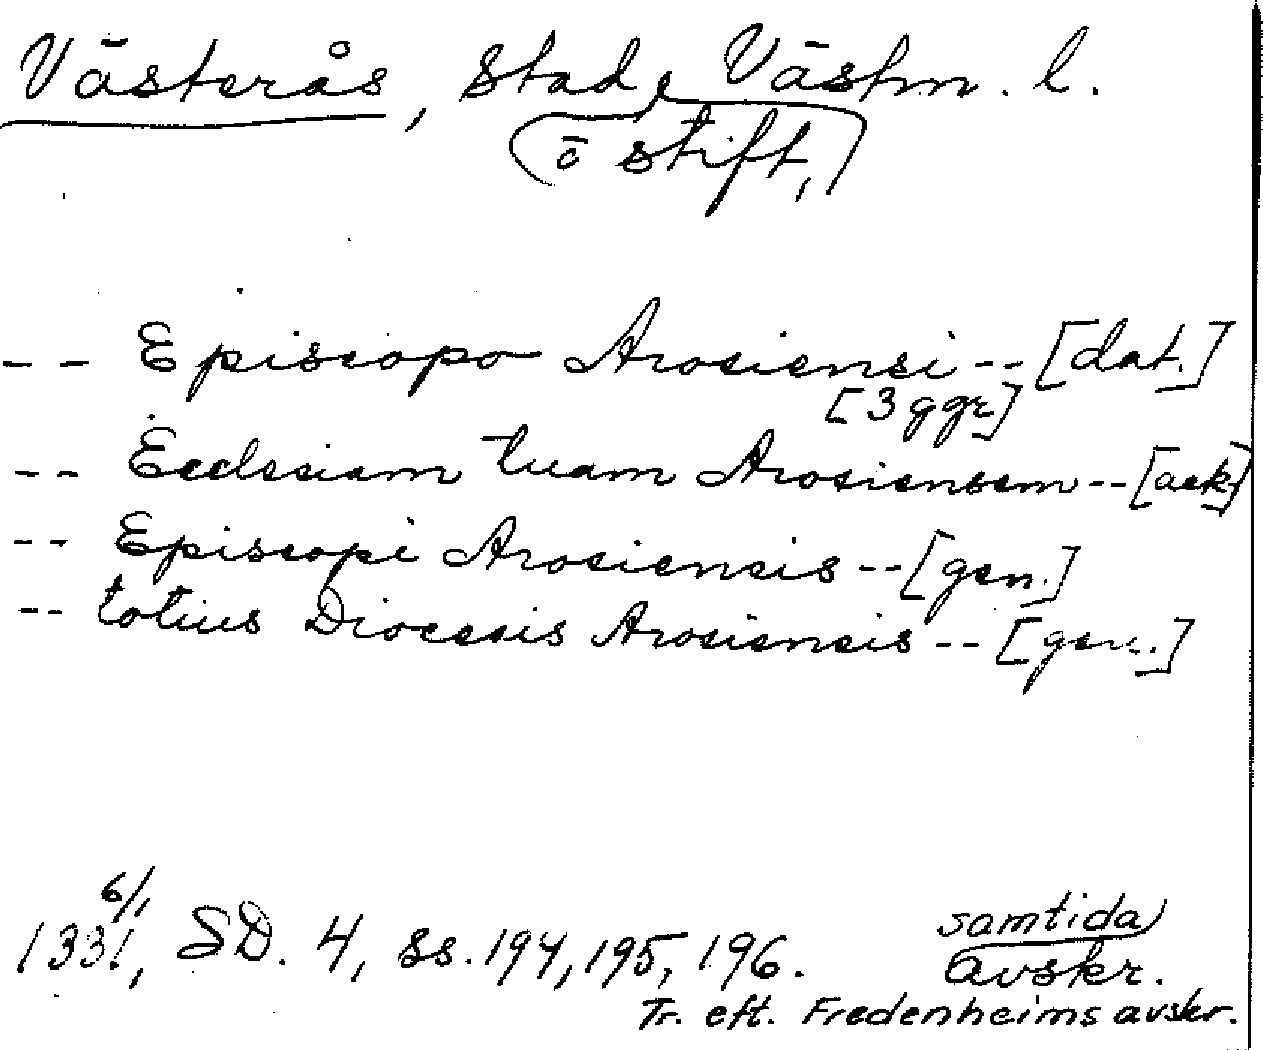 Västerås, stad, Västm. l.
(o stift,)
-- Episcopo Arosiensi -- [dat.]
[3 ggr]
-- Ecclesiam tuam Arosiensem -- [ack.]
-- Episcopi Arosiensis -- [gen.]
-- totius Diocesis Arosiensis -- [gen.]
1331 6/1, SD. 4, ss. 194, 195, 196.
samtida
avskr.
Tr. eft. Fredenheims avskr.